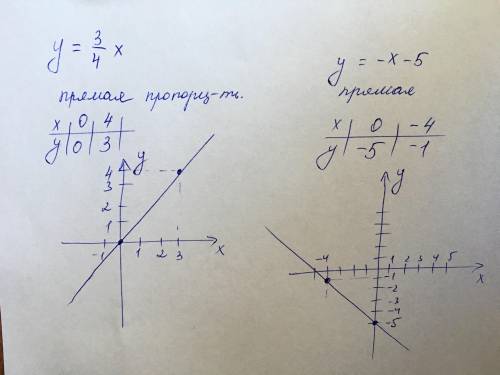 y = 3/4 x
прямая пропорц-ть.
x | 0 | 4 |
y | 0 | 3 |
y
4
3
2
1
-1 1 2 3 x
y = -x -5
прямая
x | 0 | -4
y | -5 | -1
y
-4 1 2 3 4 5
x
-1
-2
-3
-4
-5